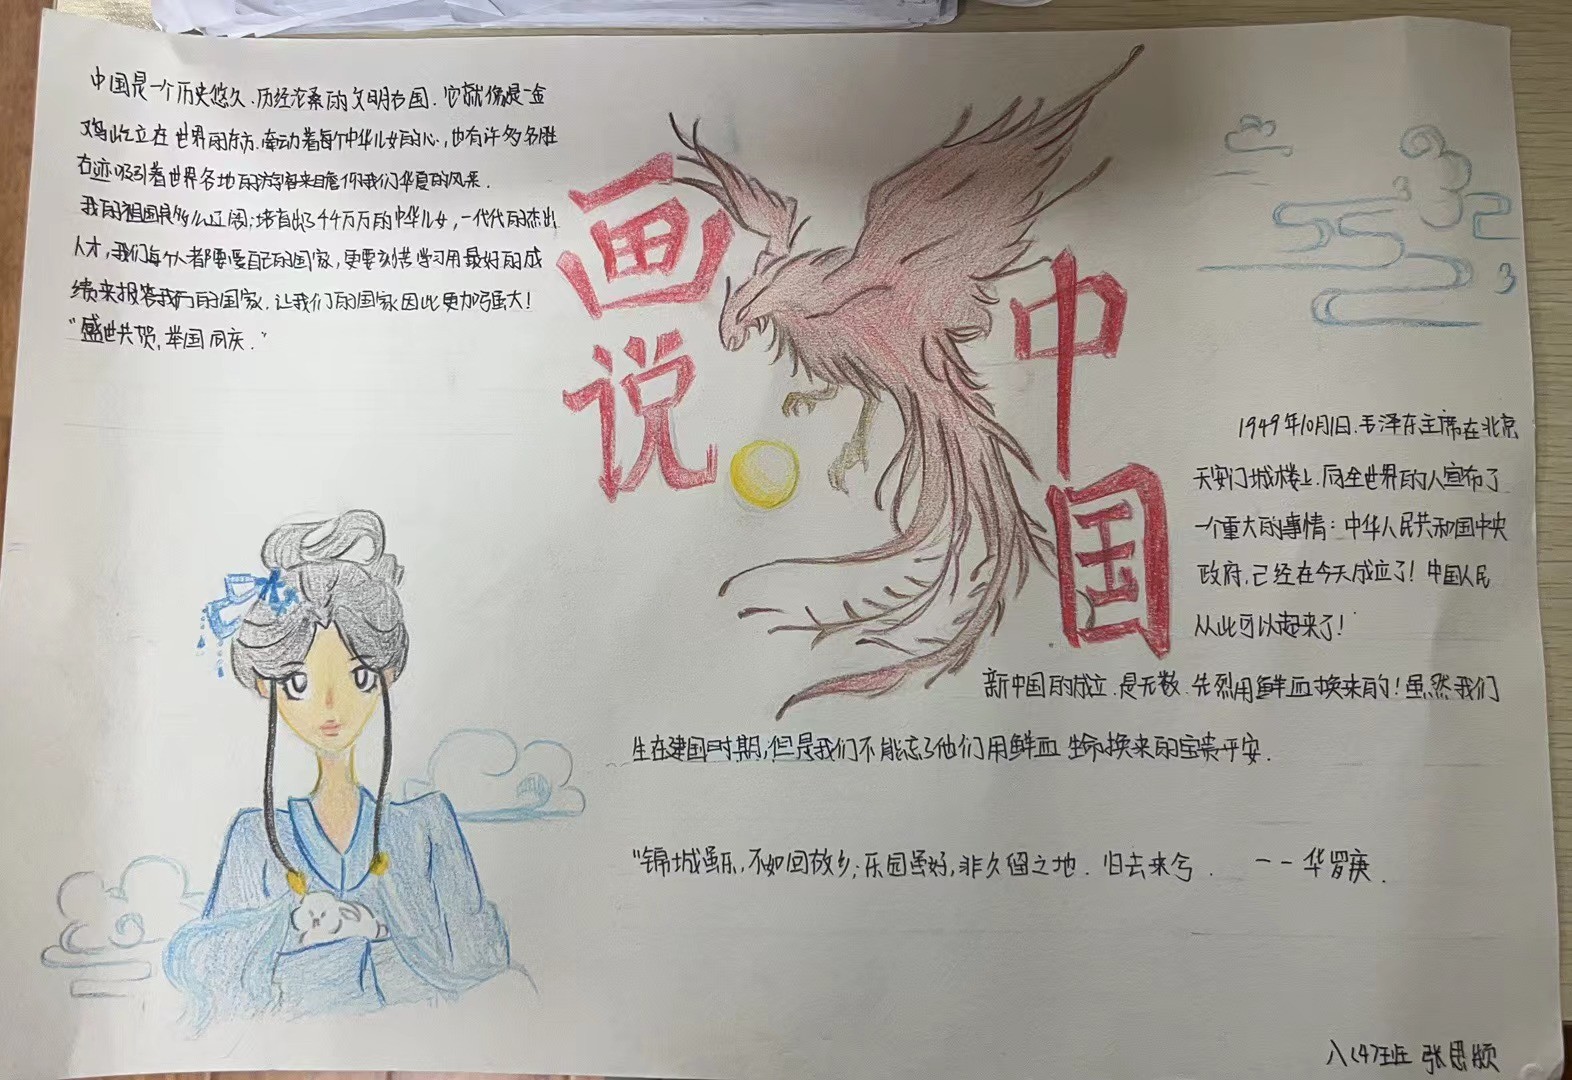 中国是一个历史悠久、历经沧桑的文明古国.它就像是一金
鸡屹立在世界的东方,牵动着每个中华儿女的心,也有许多名胜
古迹吸引着世界各地的游客来瞻仰我们华夏的风采.
我的祖国是多么辽阔;培育出了44万万的中华儿女,一代代的杰出
人才,我们每个人都要爱自己的国家,更要刻苦学习用最好的成
绩来报答我们的国家.让我们的国家因此更加强大!
"盛世共贺,举国同庆."
画说
中国
1949年10月1日.毛泽东主席在北京
天安门城楼上.向全世界的人宣布了
一个重大的事情:中华人民共和国中央
政府,已经在今天成立了!中国人民
从此可以起来了!
新中国的成立.是无数.先烈用鲜血换来的!虽然我们
生在建国时期,但是我们不能忘了他们用鲜血生命换来的平安.
"锦城虽乐,不如回故乡;乐园虽好,非久留之地.归去来兮. --华罗庚.
八(4)班 张思颍